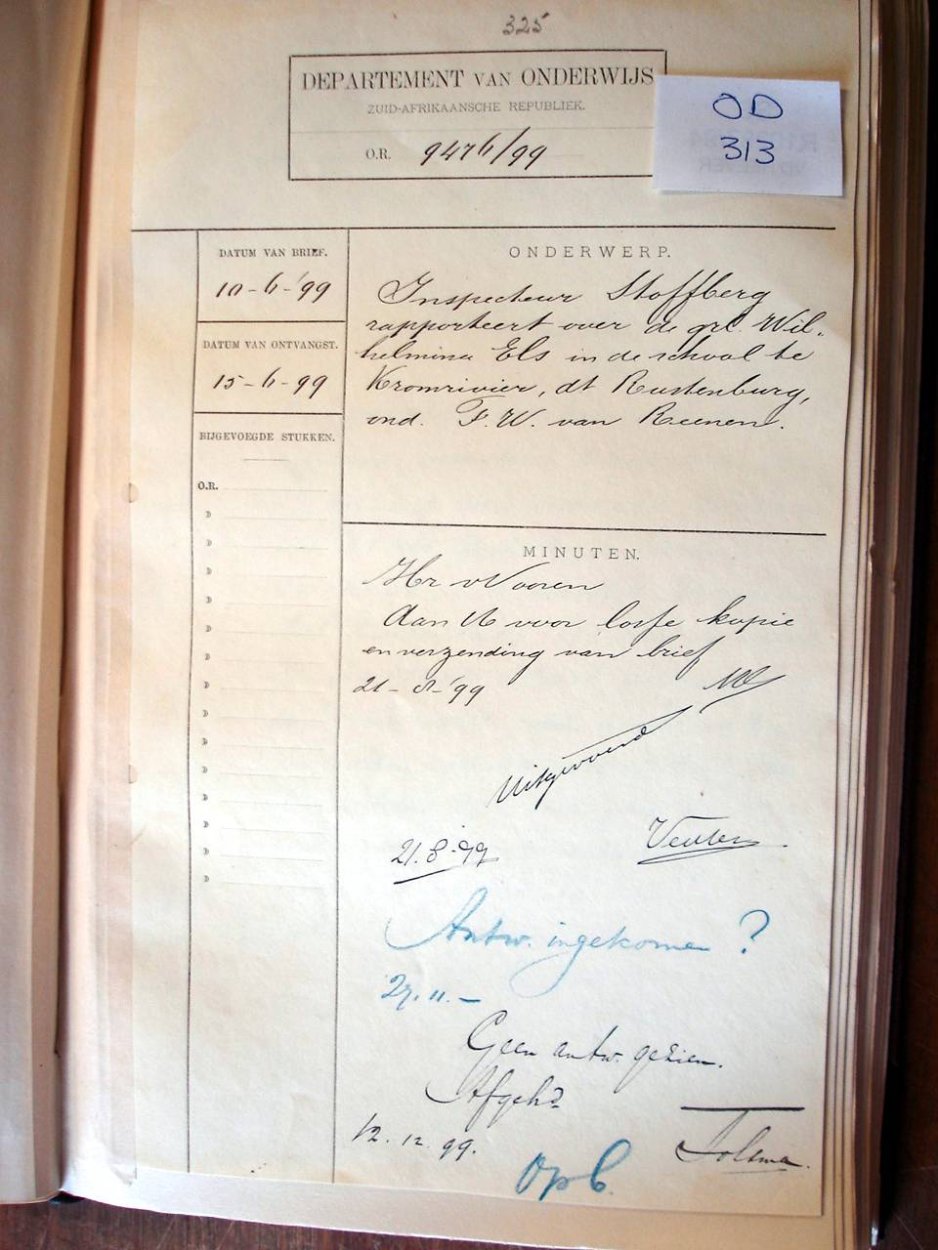 325
DEPARTEMENT VAN ONDERWIJS
ZUID-AFRIKAANSCHE REPUBLIEK.
O.R. 9476/99
OD
313
DATUM VAN BRIEF.
10-6-'99
DATUM VAN ONTVANGST.
15-6-99
BIJGEVOEGDE STUKKEN.
O.R.
ONDERWERP.
Inspecteur Stoffberg
rapporteert over de grl. Wil-
helmina Els in de school te
Kromrivier, dt Rustenburg,
ond. F. W. van Reenen.
MINUTEN.
Hr v Vooren
Aan U voor losse kopie
en verzending van brief
21-8-'99
Uitgevoerd
21.8.99
Venter
Antw. ingekomen ?
27.11.-
Geen antw. gezien.
Afgeh?
12.12.99.
Tolsma.
Op C.